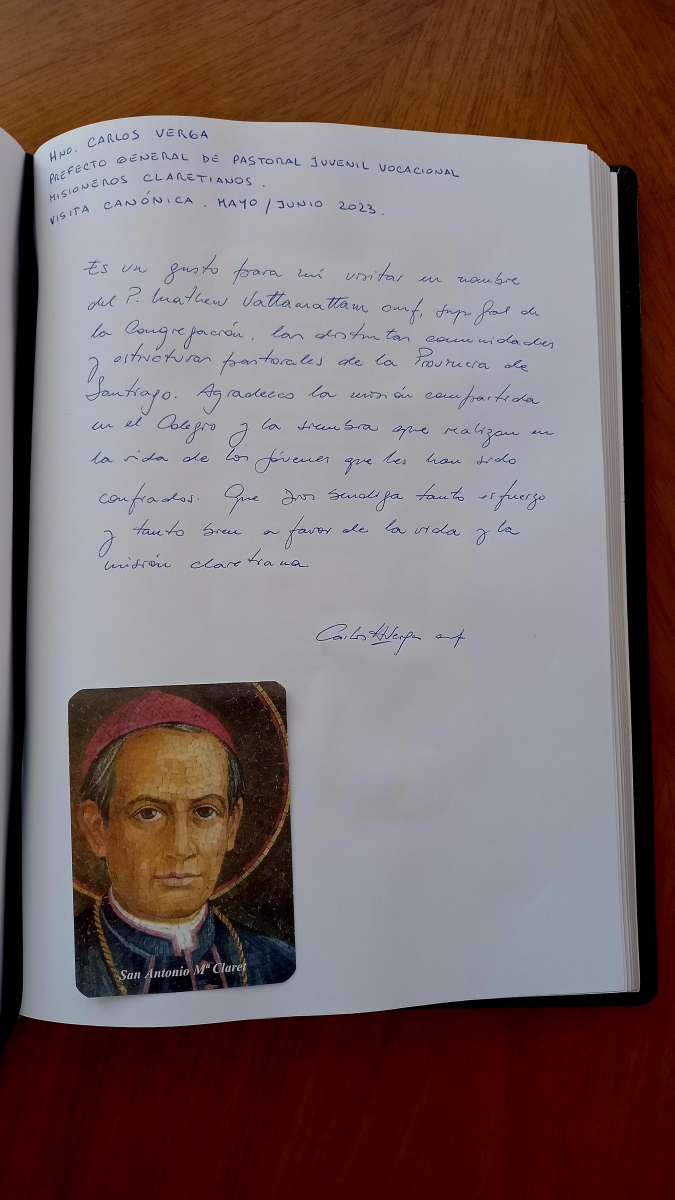 HNO. CARLOS VERGA
PREFECTO GENERAL DE PASTORAL JUVENIL VOCACIONAL
MISIONEROS CLARETIANOS.
VISITA CANÓNICA. MAYO/JUNIO 2023.
Es un gusto para mí visitar en nombre
del P. Mathew Vattamattam cmf, Sup. Gral de
la Congregación, las distintas comunidades
y estructuras pastorales de la Provincia de
Santiago. Agradezco la misión compartida
en el Colegio y la siembra que realizan en
la vida de los jóvenes que les han sido
confiados. Que Dios bendiga tanto esfuerzo
y tanto bien a favor de la vida y la
misión claretiana.
Carlos H Verga cmf
San Antonio Mª Claret